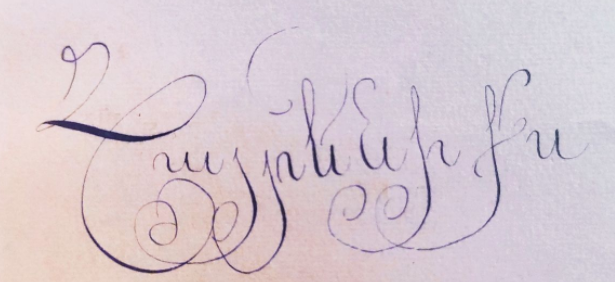 Հայրենիքս